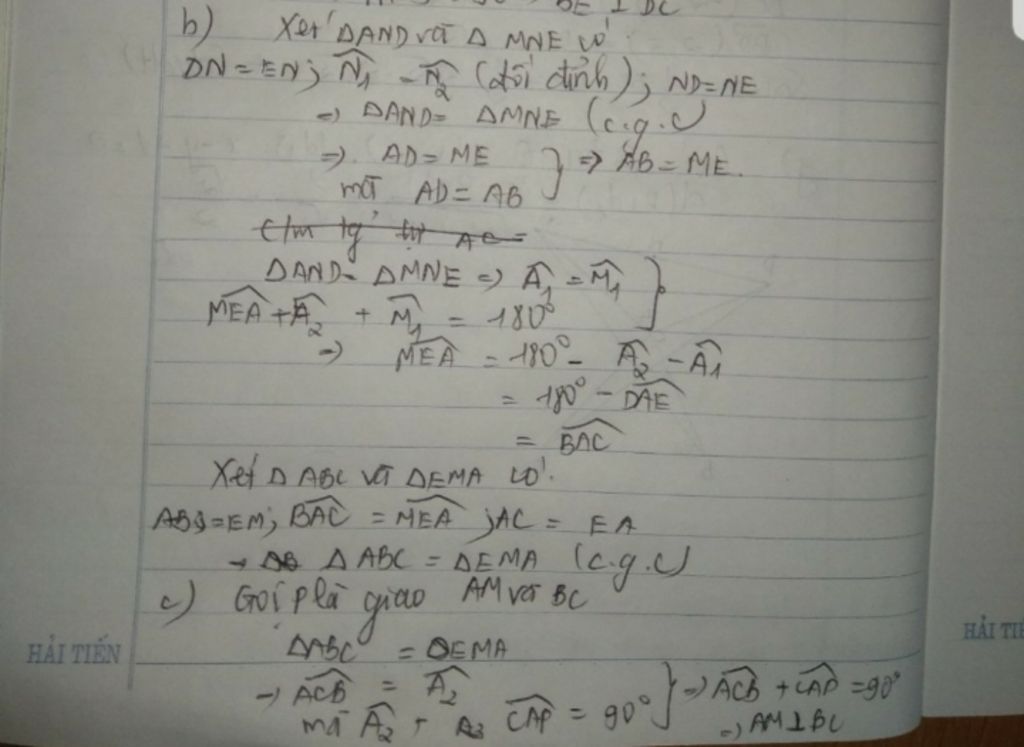 BE ⊥ DC
b) Xét ΔAND và Δ MNE có
DN = EN; N̂₁ = N̂₂ (đối đỉnh); ND = NE
⇒ ΔAND = ΔMNE (c.g.c)
⇒ AD = ME
mà AD = AB } ⇒ AB = ME.
ΔAND = ΔMNE ⇒ Â₁ = M̂₁ }
MEA + Â₂ + M̂₁ = 180°
⇒ MEA = 180° - Â₂ - Â₁
= 180° - DAE
= BAC
Xét Δ ABC và ΔEMA có
AB = EM; BAC = MEA; AC = EA
→ Δ ABC = ΔEMA (c.g.c)
c) Gọi P là giao AM và BC
ΔABC = ΔEMA
⇒ ACB = Â₂
mà Â₂ + CAP = 90° } ⇒ ACB + CAP = 90°
⇒ AM ⊥ BC
HẢI TIẾN
HẢI TIẾ